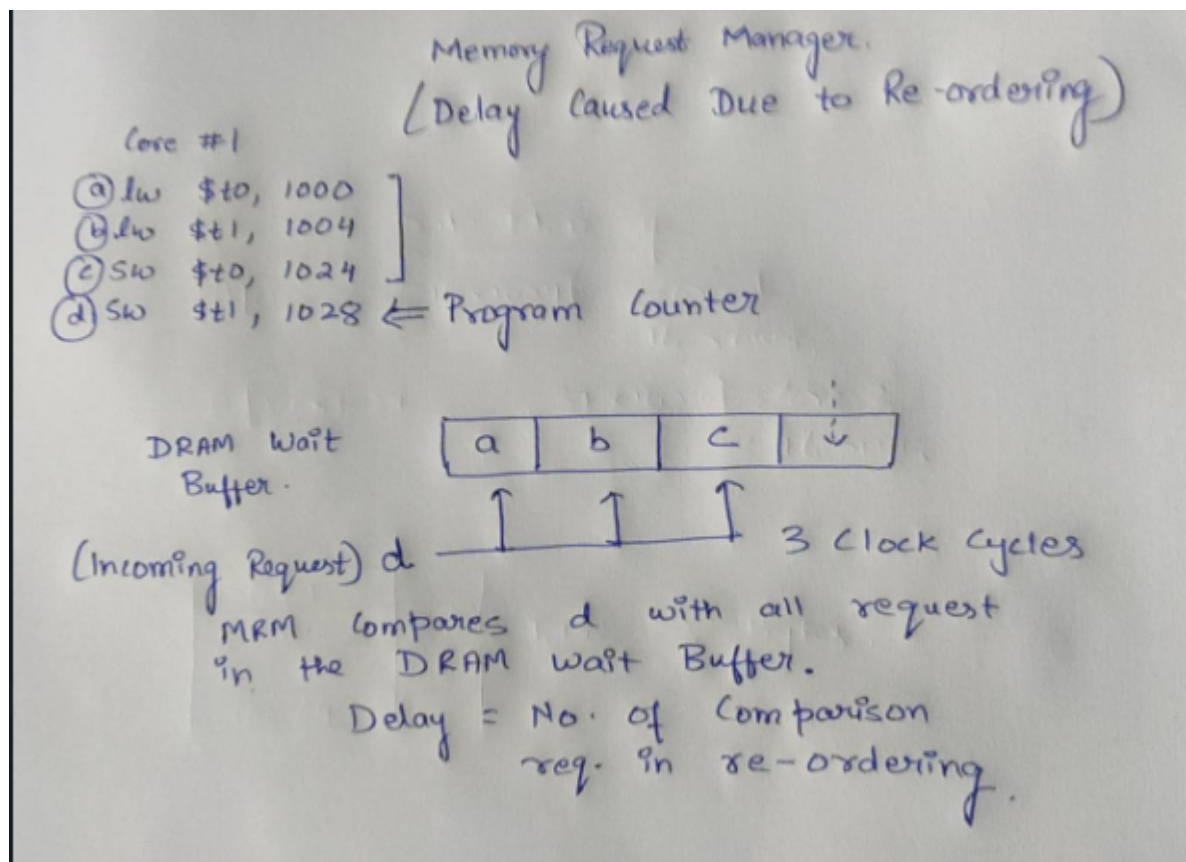 Memory Request Manager.
(Delay Caused Due to Re-ordering)
Core #1
a lw $t0, 1000
b lw $t1, 1004
c sw $t0, 1024
d sw $t1, 1028 ⇐ Program Counter
DRAM Wait
Buffer.
a b c
(Incoming Request) d 3 Clock Cycles
MRM Compares d with all request
in the DRAM wait Buffer.
Delay = No. of Comparison
req. in re-ordering.